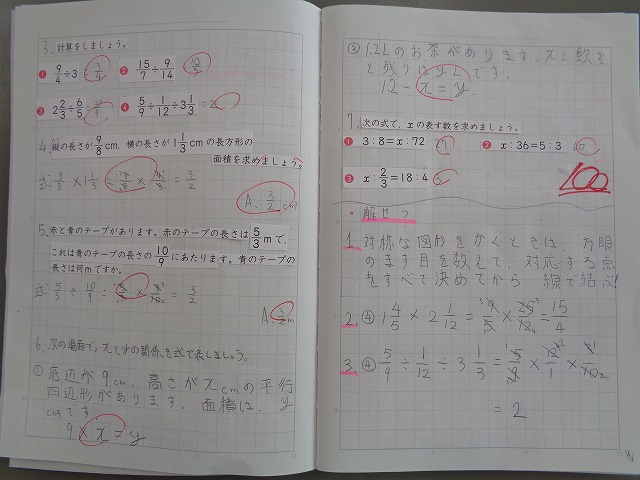 3. 計算をしましょう。
❶ 9/4÷3 = 3/4 ❷ 15/7÷9/14 = 10/3
❸ 2 2/3÷6/5 ❹ 5/9÷1/12÷3 1/3 = 2
4. 縦の長さが 9/8 cm、横の長さが 1 1/3 cmの長方形の
面積を求めましょう。
式 9/8 × 1 1/3 = 9/8 × 4/3 = 3/2
A. 3/2 cm²
5. 赤と青のテープがあります。赤のテープの長さは 5/3 mで、
これは青のテープの長さの 10/9 にあたります。青のテープの
長さは何mですか。
式 5/3 ÷ 10/9 = 5/3 × 9/10 = 3/2
A. 3/2 m
6. 次の場面で、xとyの関係を式で表しましょう。
① 底辺が9cm、高さがxcmの平行
四辺形があります。面積は、y
cm²です。
9 × x = y
② 1.2Lのお茶があります。xL飲む
と残りはyLです。
12 - x = y
7. 次の式で、xの表す数を求めましょう。
❶ 3:8=x:72 ❷ x:36=5:3
❸ x:2/3=18:4
100
・解せつ
1. 対称な図形をかくときは、方眼
のます目を数えて、対応する点
をすべて決めてから、線で結ぶ!
2. ④ 1 4/5 × 2 1/12 = 9/5 × 25/12 = 15/4
3. ④ 5/9 ÷ 1/12 ÷ 3 1/3 = 5/9 × 12/1 × 3/10
= 2